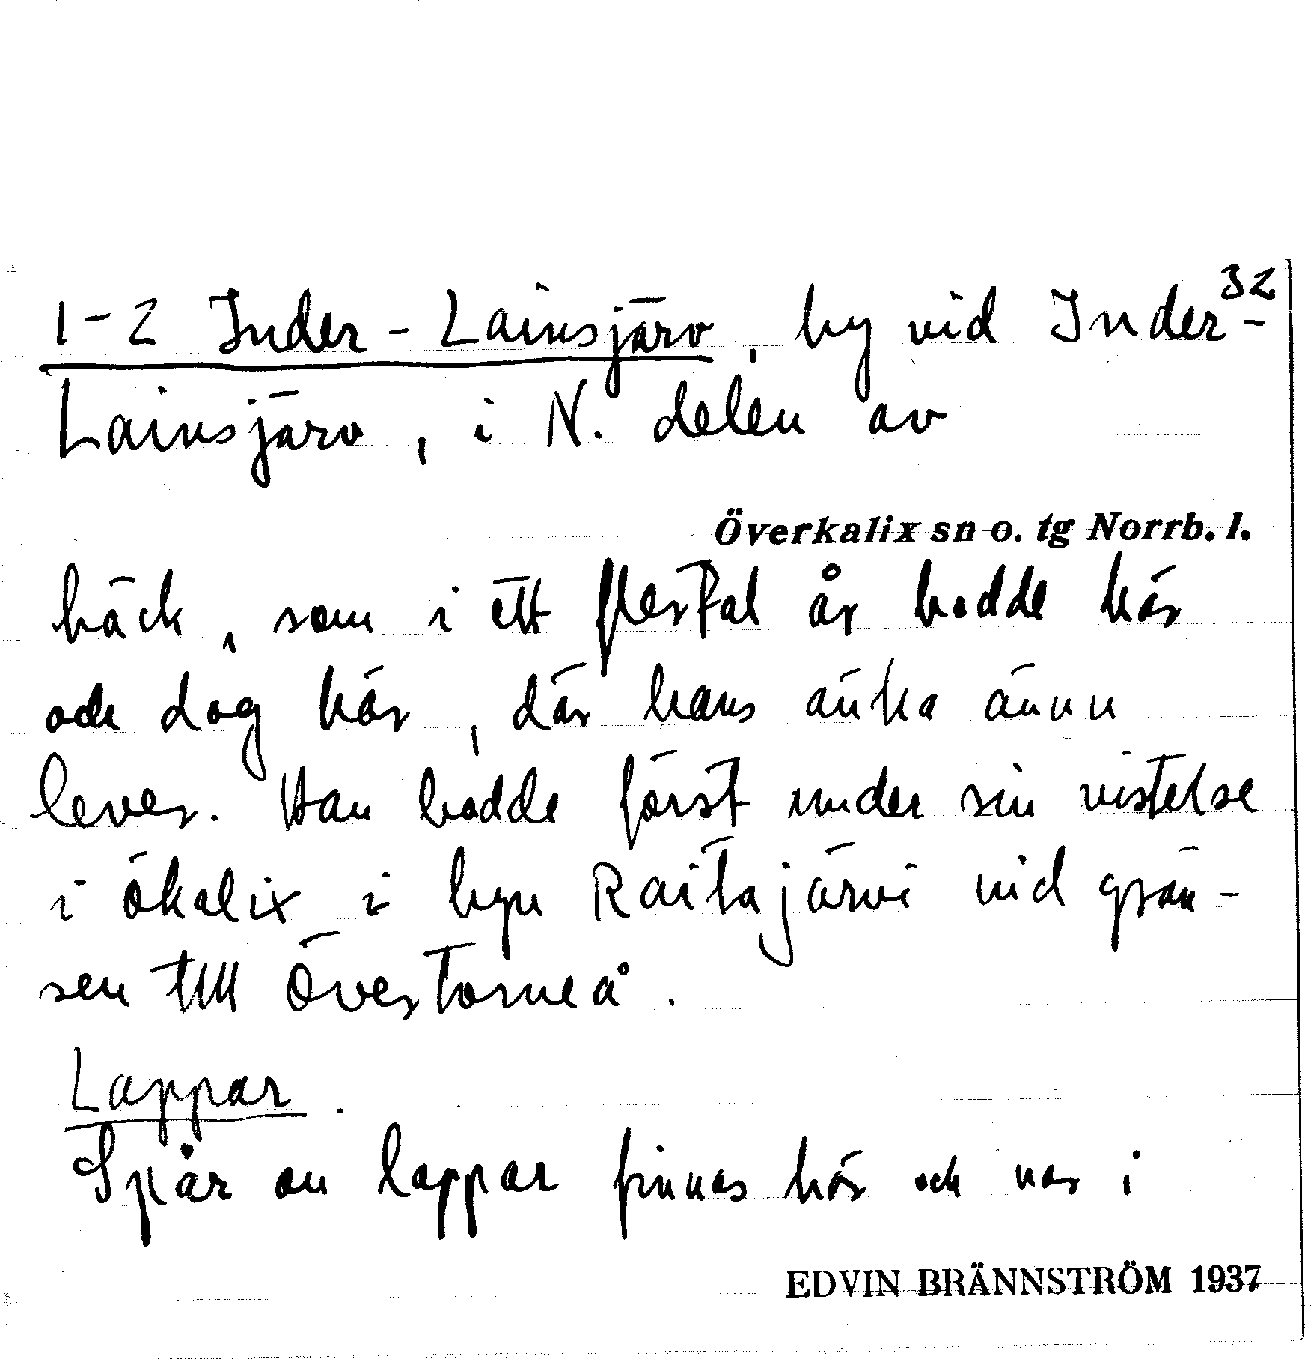 32
1-2 Inder-Lainsjärv, by vid Inder-
Lainsjärv, i N. delen av
Överkalix sn o. tg Norrb. l.
bäck, som i ett flertal år bodde här
och dog här, där hans änka ännu
lever. Han bodde först under sin vistelse
i ökalix i byn Raitajärvi vid grän-
sen till Övertorneå.
Lappar.
Spår av lappar finnas här och var i
EDVIN BRÄNNSTRÖM 1937